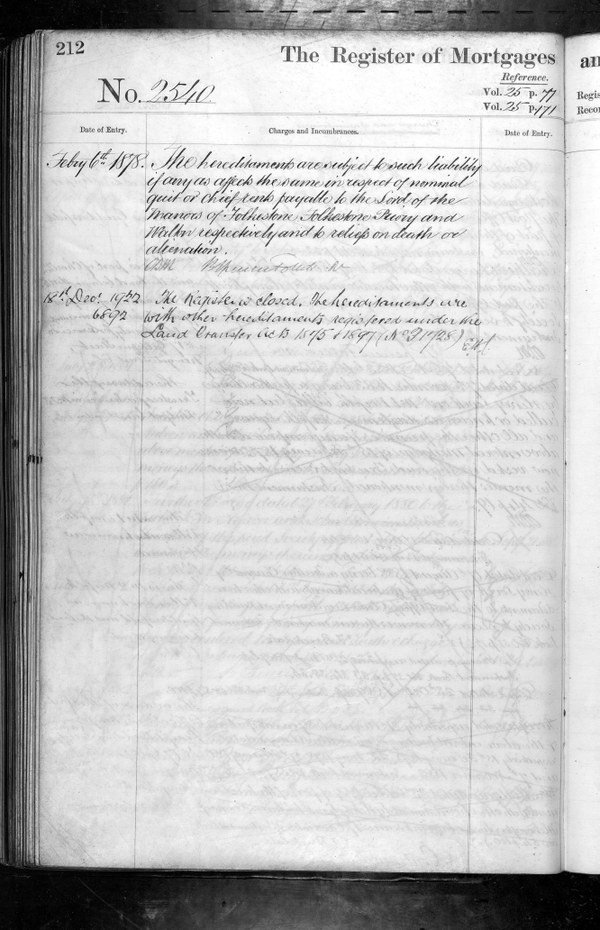 212
The Register of Mortgages
Reference.
No. 2540
Vol. 25 p. 77
Vol. 25 p. 171
Date of Entry.
Charges and Incumbrances.
Date of Entry.
Feby 6th 1878.
The hereditaments are subject to such liability
if any as affects the same in respect of nominal
quit or chief rents payable to the Lord of the
Manors of Folkestone, Folkestone Priory and
Walton respectively and to reliefs on death or
alienation.
18th Decr 1922
6892
The Register is closed. The hereditaments are
with other hereditaments registered under the
Land Transfer Acts 1875 & 1897 (No
an
Regis
Recor